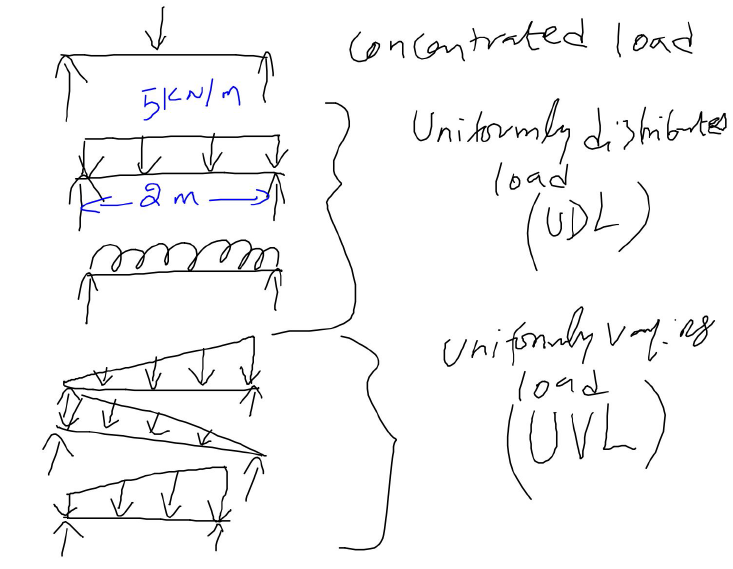 concentrated load
5KN/m
Uniformly distributed
load
(UDL)
2 m
Uniformly varying
load
(UVL)